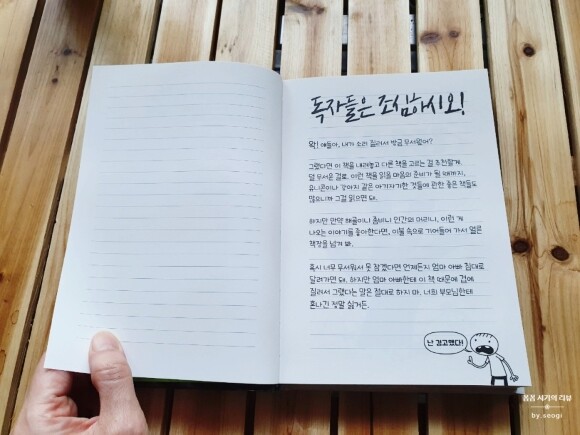 독자들은 조심하시오!
왁! 얘들아, 내가 소리 질러서 방금 무서웠어?
그랬다면 이 책을 내려놓고 다른 책을 고르는 걸 추천할게.
덜 무서운 걸로. 이런 책을 읽을 마음의 준비가 될 때까지,
유니콘이나 강아지 같은 아기자기한 것들에 관한 좋은 책들도
많으니까 그걸 읽으면 돼.
하지만 만약 해골이니 좀비니 인간의 머리니, 이런 게
나오는 이야기를 좋아한다면, 이불 속으로 기어들어 가서 얼른
책장을 넘겨 봐.
혹시 너무 무서워서 못 참겠다면 언제든지 엄마 아빠 침대로
달려가면 돼. 하지만 엄마 아빠한테 이 책 때문에 겁에
질려서 그랬다는 말은 절대로 하지 마. 너희 부모님한테
혼나긴 정말 싫거든.
난 경고했다!
봄봄 서기의 리뷰
by.seogi